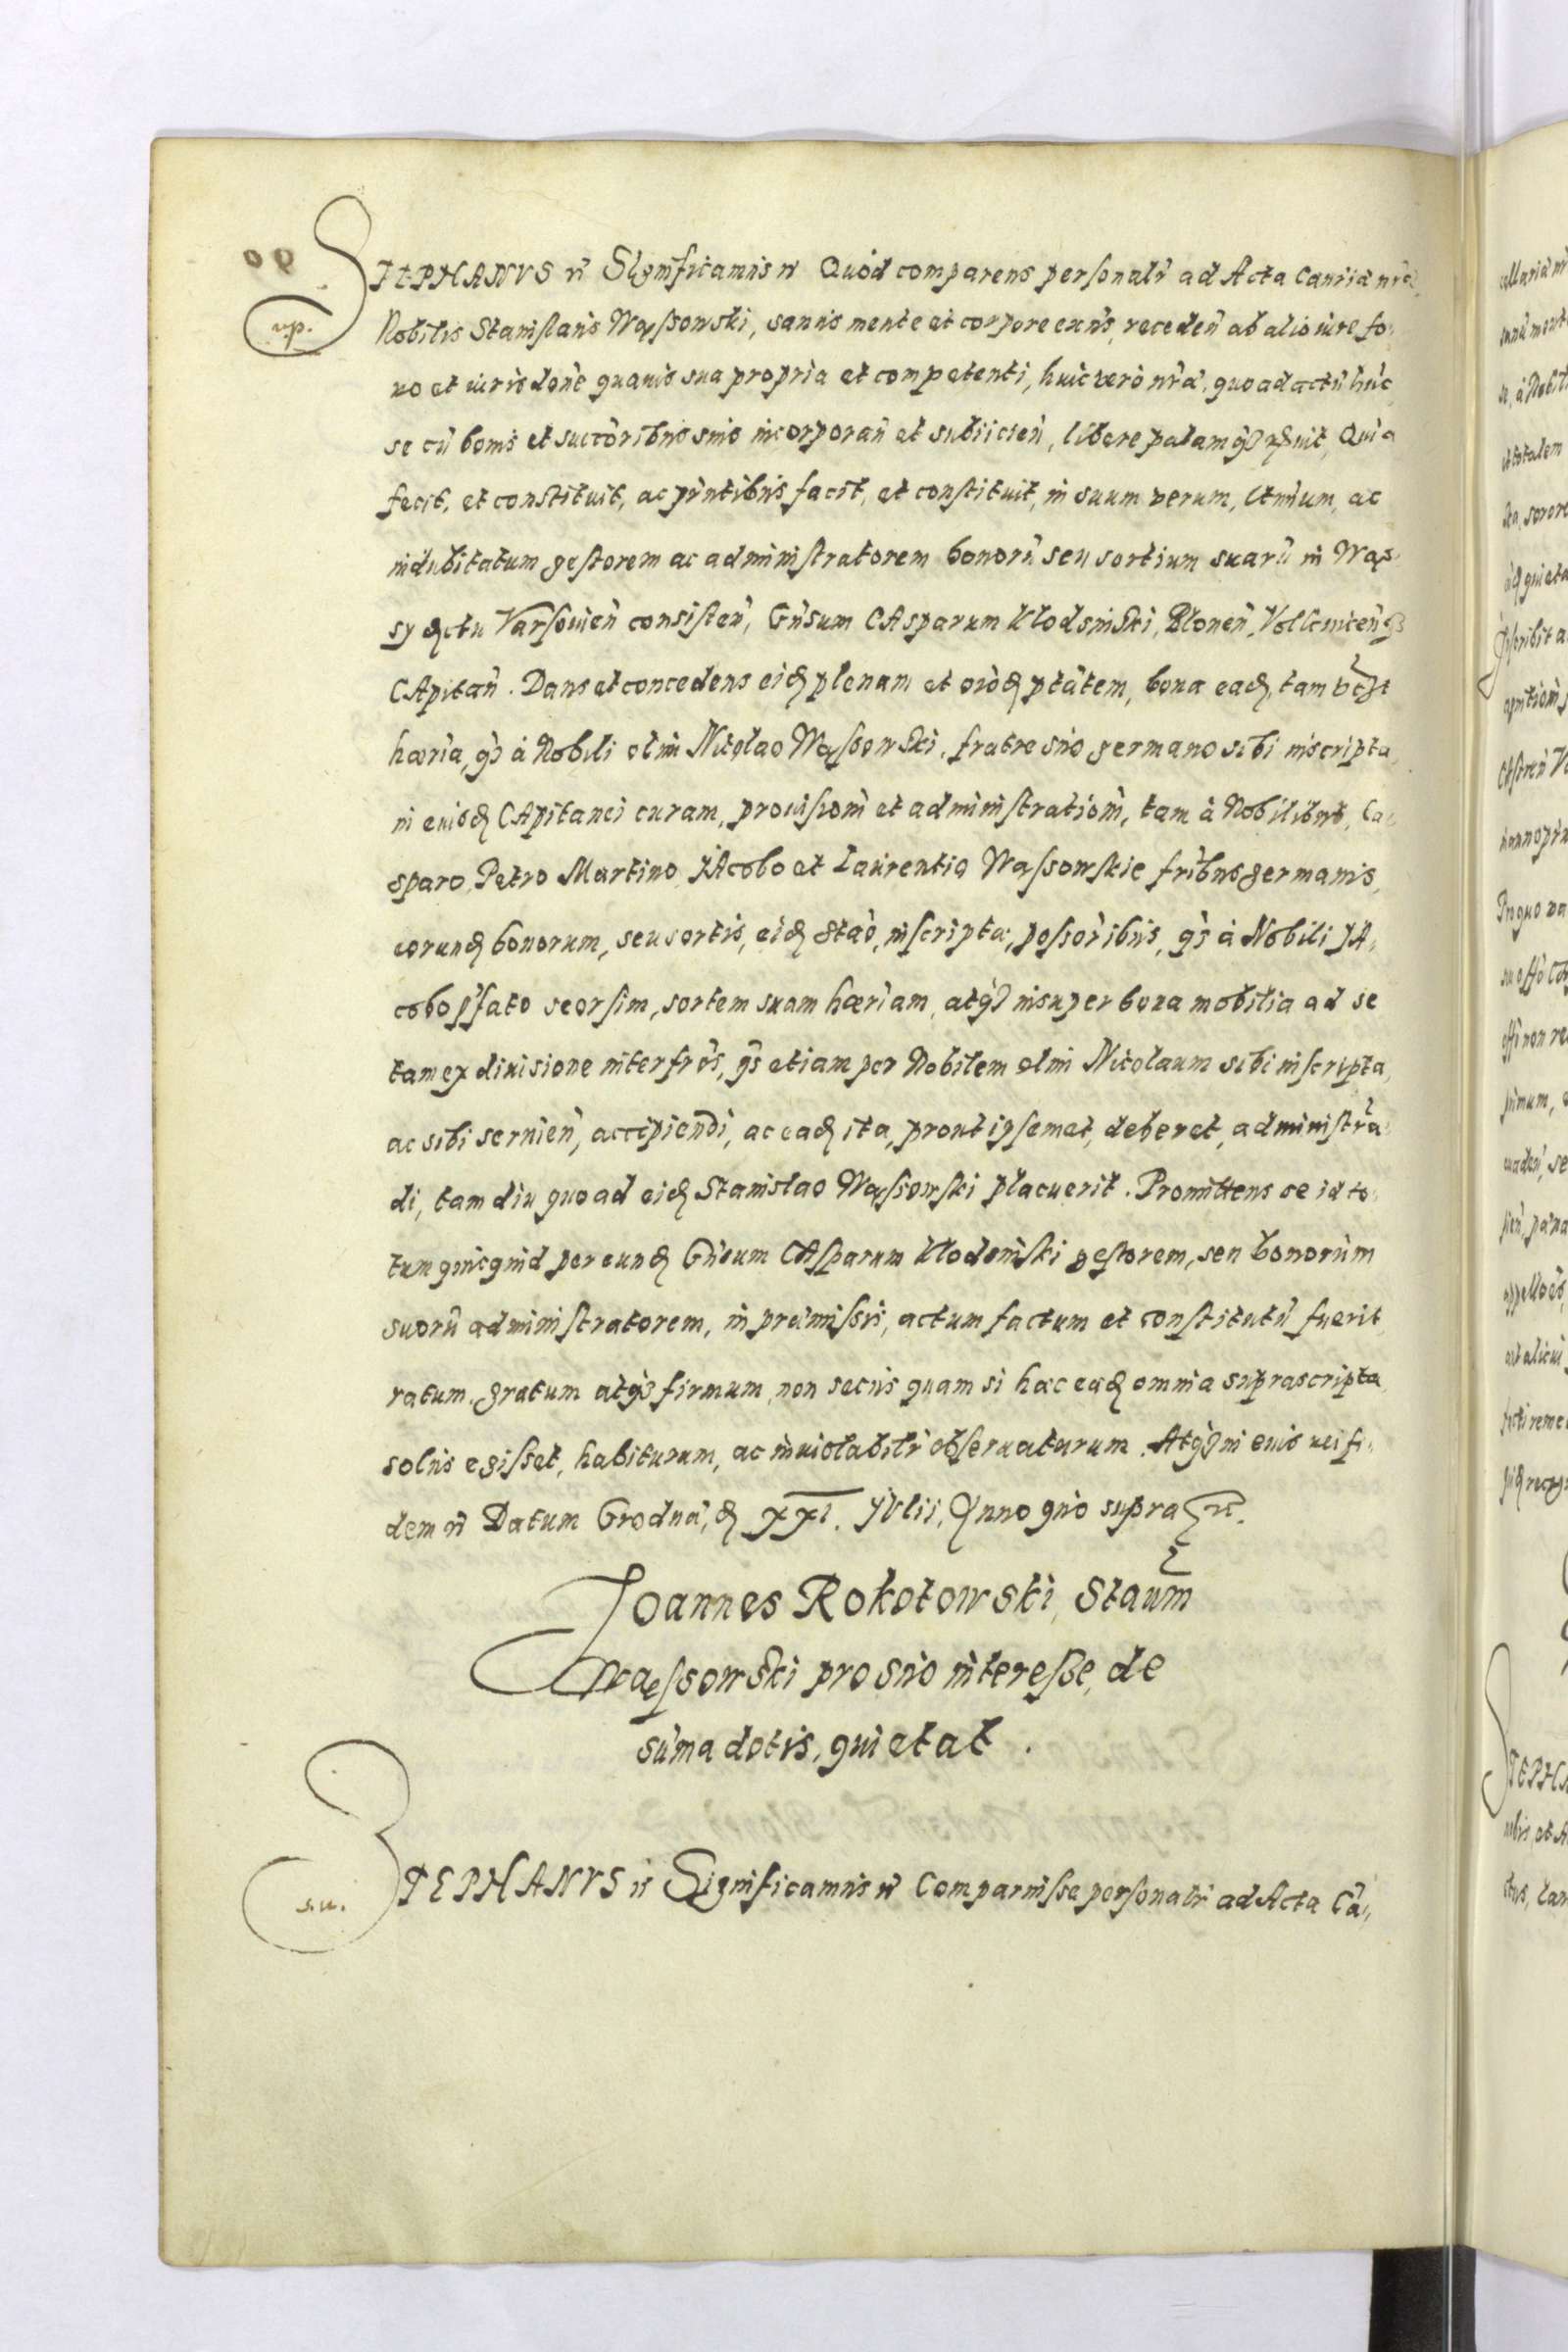 STEPHANVS rc̃ Significamus rc̃ Quòd comparens personalr̃ ad Acta Cancria nr̃a,
Nobilis Stanislaus Wąssowski, sanus mente et corpore exñs, receden̄ ab alio iure fo-
ro et iurisdoñe quauis sua propria et competenti, huic verò nr̃a, quo ad actū hūc
se cū bonis et succoribus suis incorporan̄ et subiicien̄, libere palamq3 Quia
fecit, et constituit, ac pñtibus facit, et constituit, in suum verum, ltmum, ac
indubitatum gestorem ac administratorem bonorū seu sortium suarū in Wąs-
sy Varsouien̄ consisten̄, Gñsum CAsparum Klodsinski, Blonen̄,
CApitan̄. Dans et concedens eid plenam et ptātem, bona ead, tam
hæria, à Nobili olim Nicolao Wąssowski, fratre suo germano sibi inscripta,
in eiusd CApitanei curam, prouisionem̄ et administrationem̄, tam à Nobilibus, Ca-
sparo, Petro Martino, JAcobo et Laurentio Wąssowskie fribus germanis,
eorund bonorum, seu sortis, eid Stao, inscriptæ, possoribus, à Nobili JA-
cobo pfato seorsim, sortem suam hæriam, atq3 insuper bona mobilia ad se
tam ex diuisione inter frēs, etiam per Nobilem olim Nicolaum sibi inscripta,
ac sibi seruien̄, accipiendi, ac ead ita, prout ipsemet, deberet, administrā-
di, tam diu quoad eid Stanislao Wąssowski placuerit. Promittens se id to-
tum quicquid per eund Gñsum CAsparum Klodsinski gestorem, seu bonorum
suorū administratorem, in præmissis, actum factum et constitutū fuerit,
ratum, gratum atq3 firmum, non secus quam si hæc ead omnia suprascripta,
solus egisset, habiturum, ac inuiolabilr̃ obseruaturum. Atq3 in euius rei fi-
dem rc̃ Datum Grodnæ, d XXI. JVlii, Anno quo supra rc̃.
Joannes Rokotowski, Staum
Wąssowski pro suo interesse, de
sūma dotis, quietat.
STEPHANVS rc̃ Significamus rc̃ Comparuisse personalr̃ ad Acta Cā-